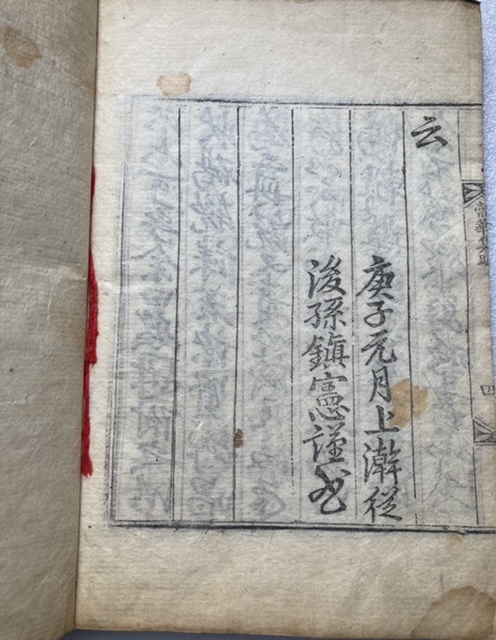 云
庚子元月上澣從
後孫鎭憲謹書
四